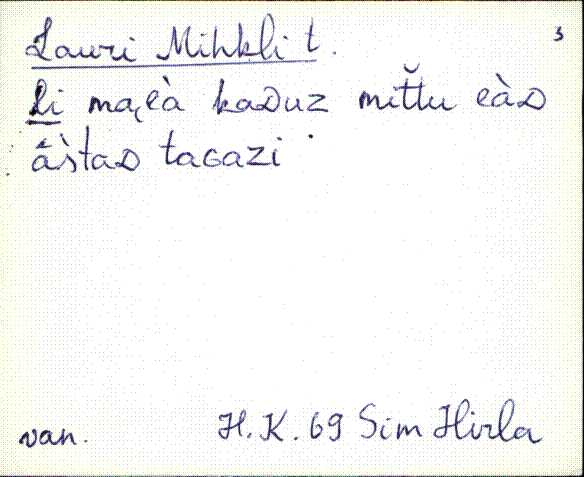 3
Lauri Mihkli t.
li ma̮eà kaᴅuz mit̆tu eàᴅ
ä̀stàᴅ taGazi
van. H.K. 69 Sim Hirla